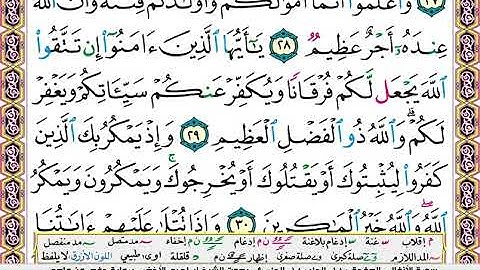 وَٱعْلَمُوٓا۟ أَنَّمَآ أَمْوَٰلُكُمْ وَأَوْلَٰدُكُمْ فِتْنَةٌ وَأَنَّ ٱللَّهَ
عِندَهُۥٓ أَجْرٌ عَظِيمٌ ٢٨ يَٰٓأَيُّهَا ٱلَّذِينَ ءَامَنُوٓا۟ إِن تَتَّقُوا۟
ٱللَّهَ يَجْعَل لَّكُمْ فُرْقَانًا وَيُكَفِّرْ عَنكُمْ سَيِّـَٔاتِكُمْ وَيَغْفِرْ
لَكُمْ ۗ وَٱللَّهُ ذُو ٱلْفَضْلِ ٱلْعَظِيمِ ٢٩ وَإِذْ يَمْكُرُ بِكَ ٱلَّذِينَ
كَفَرُوا۟ لِيُثْبِتُوكَ أَوْ يَقْتُلُوكَ أَوْ يُخْرِجُوكَ ۚ وَيَمْكُرُونَ وَيَمْكُرُ
ٱللَّهُ ۖ وَٱللَّهُ خَيْرُ ٱلْمَٰكِرِينَ ٣٠ وَإِذَا تُتْلَىٰ عَلَيْهِمْ ءَايَٰتُنَا
إقلاب غنة إدغام بلاغنة إدغام إخفاء مد متصل مد منفصل
ملا يلفظ صلة كبرى صلة صغرى قلقلة طبيعي اللون الأزرق